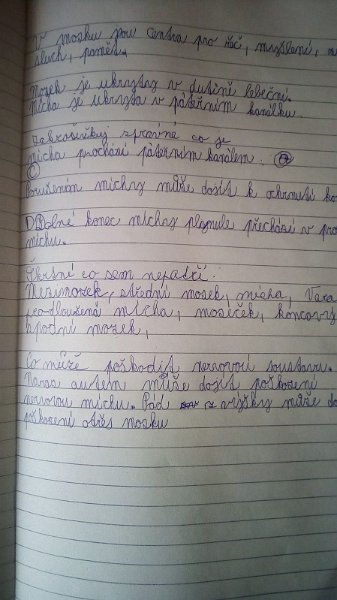 V mozku jsou centra pro řeč, myšlení,
sluch, paměť.
Mozek je ukrytý v dutině lebeční.
Mícha je ukrytá v páteřním kanálku.
Zakroužkuj správně co je
mícha prochází páteřním kanálem.
C
Porušením míchy může dojít k ochrnutí ko
D Dolné konec míchy plynule přechází v pro
míchu.
Škrtni co sem nepatří.
Mezimozek, střední mozek, mícha,
prodloužená mícha, mozeček, koncový
spodní mozek,
Co může poškodit nervovou soustavu.
Náraz autem může dojít poškození
nervovou míchu. Pád z výšky může do
poškození otřes mozku